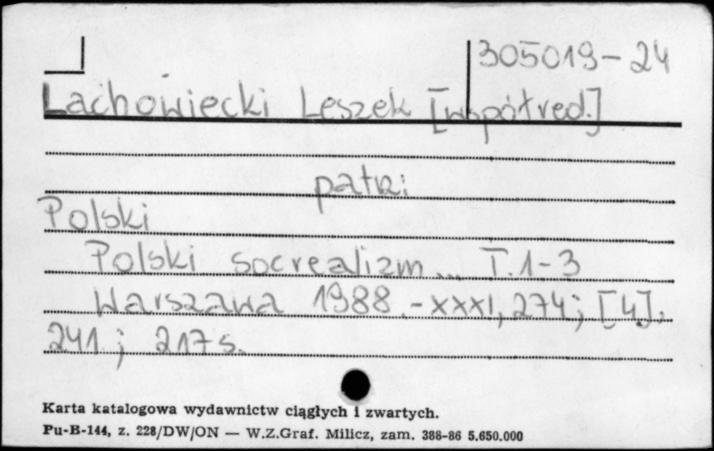 305019-24
Lachowiecki Leszek [współred.]
patrz:
Polski
Polski socrealizm... T.1-3
Warszawa 1988.-XXXI, 274; [4],
241; 217 s.
Karta katalogowa wydawnictw ciągłych i zwartych.
Pu-B-144, z. 228/DW/ON — W.Z.Graf. Milicz, zam. 388-86 5.650.000